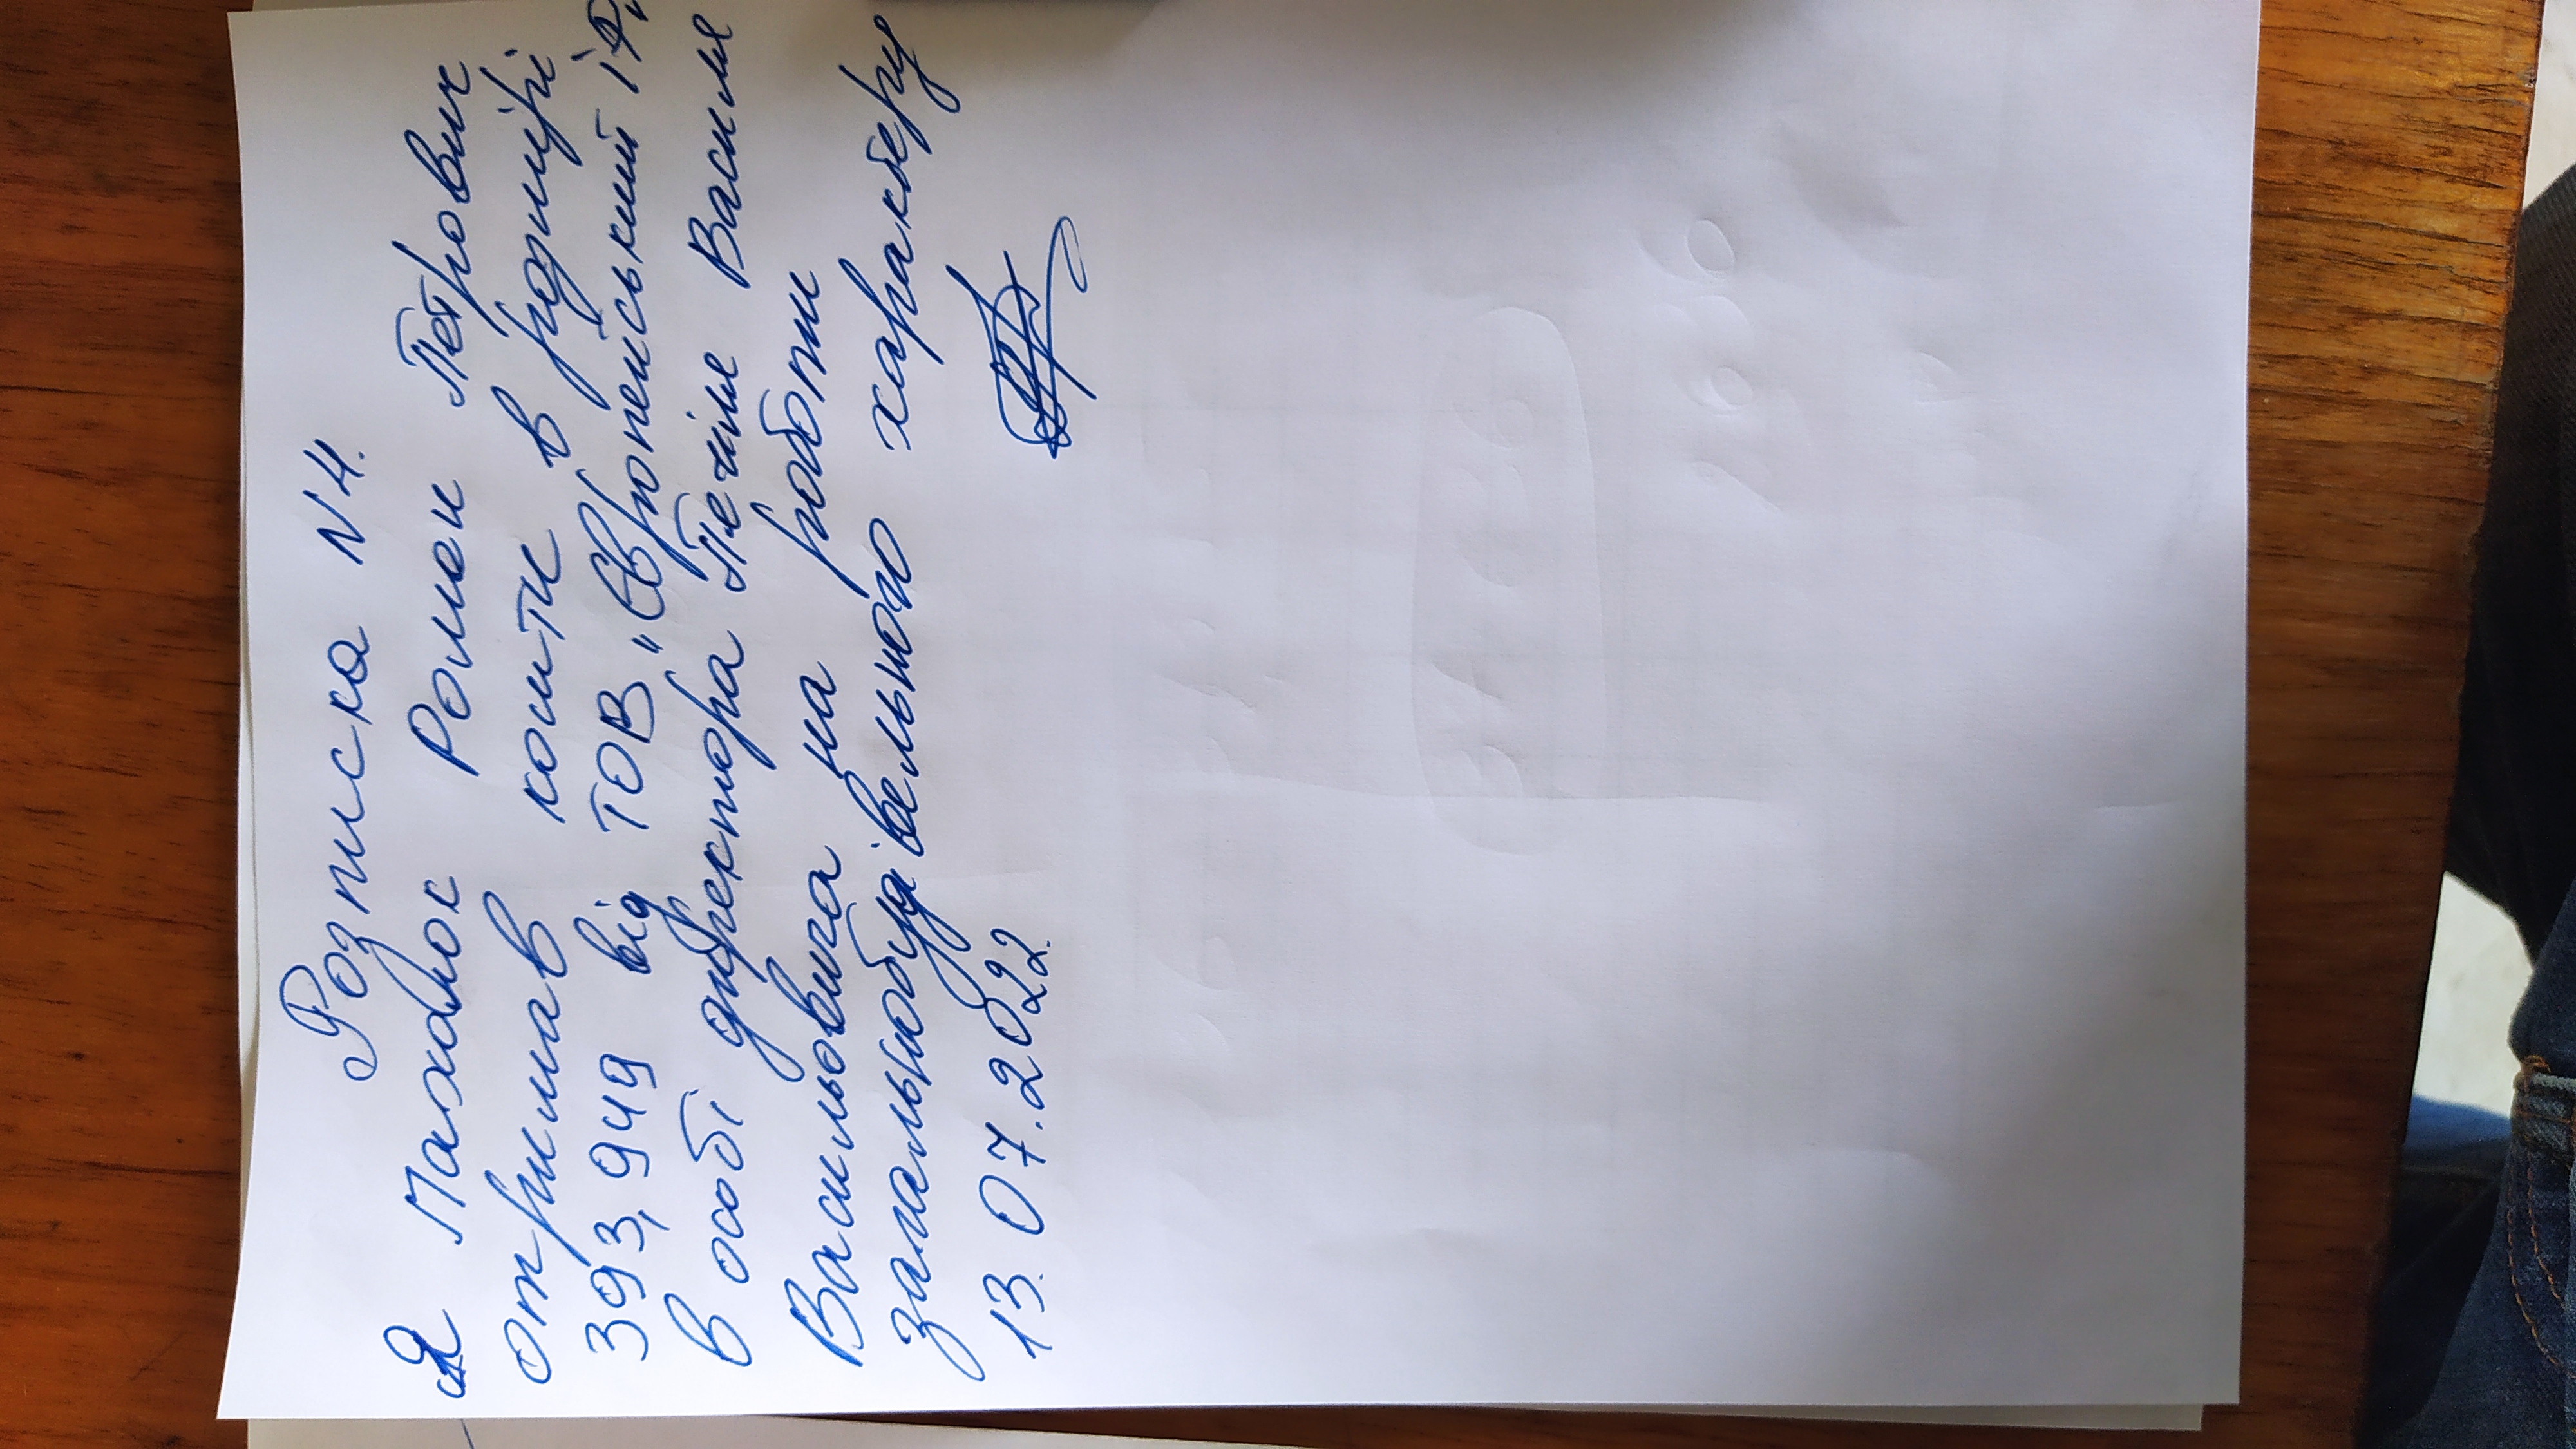 Розписка N4.
Я Махалюк Роман Петрович
отримав кошти в розмірі
393,949 від ТОВ „Європейський ІФ"
в особі директора Печіля Василя
Васильовича на роботи
загальнобудівельного характеру
13.07.2022.